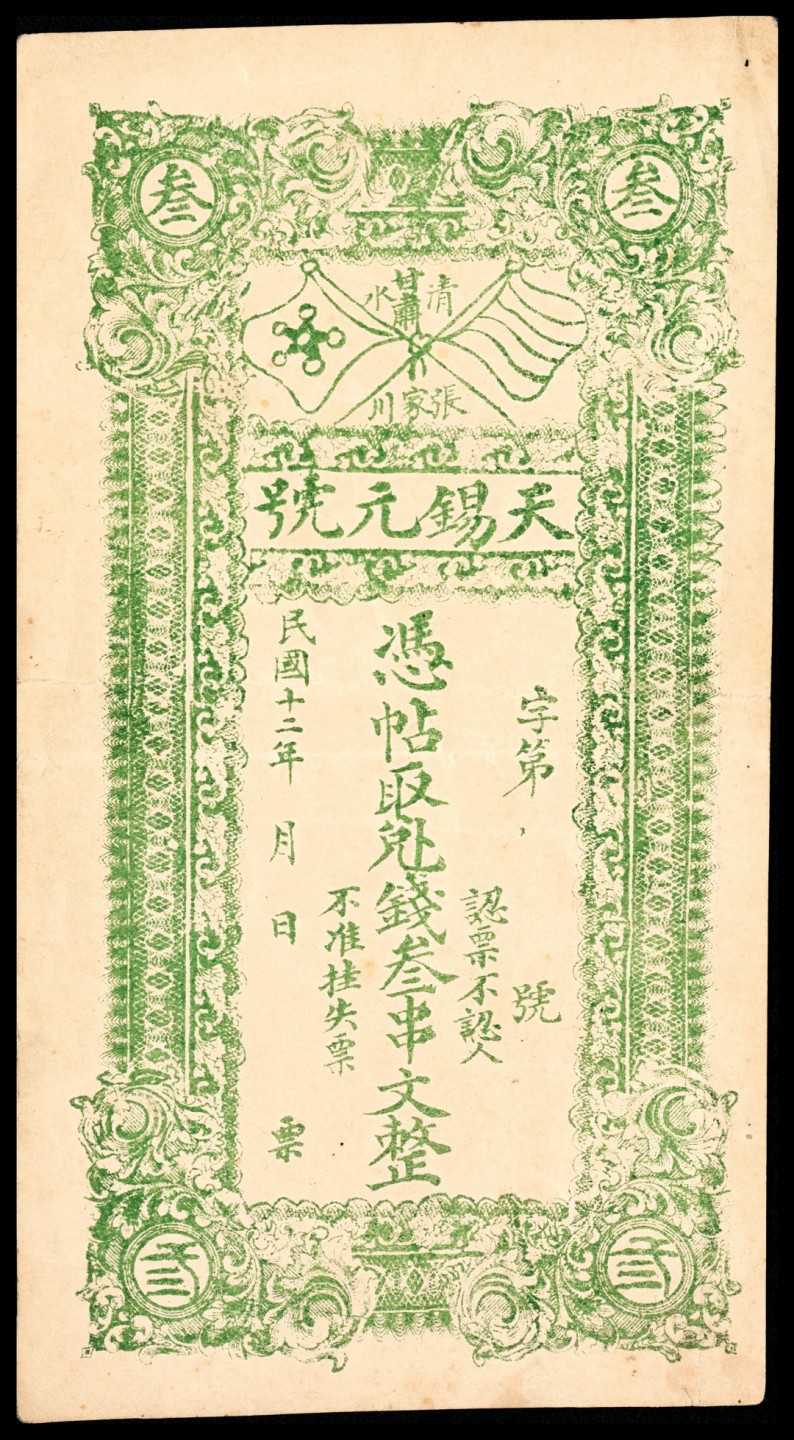 叁 叁
甘肅
清水
張家川
天錫元號
字第 號
認票不認人
憑帖取兌錢叁串文整
不准挂失票
民國十二年 月 日 票
弎 弎